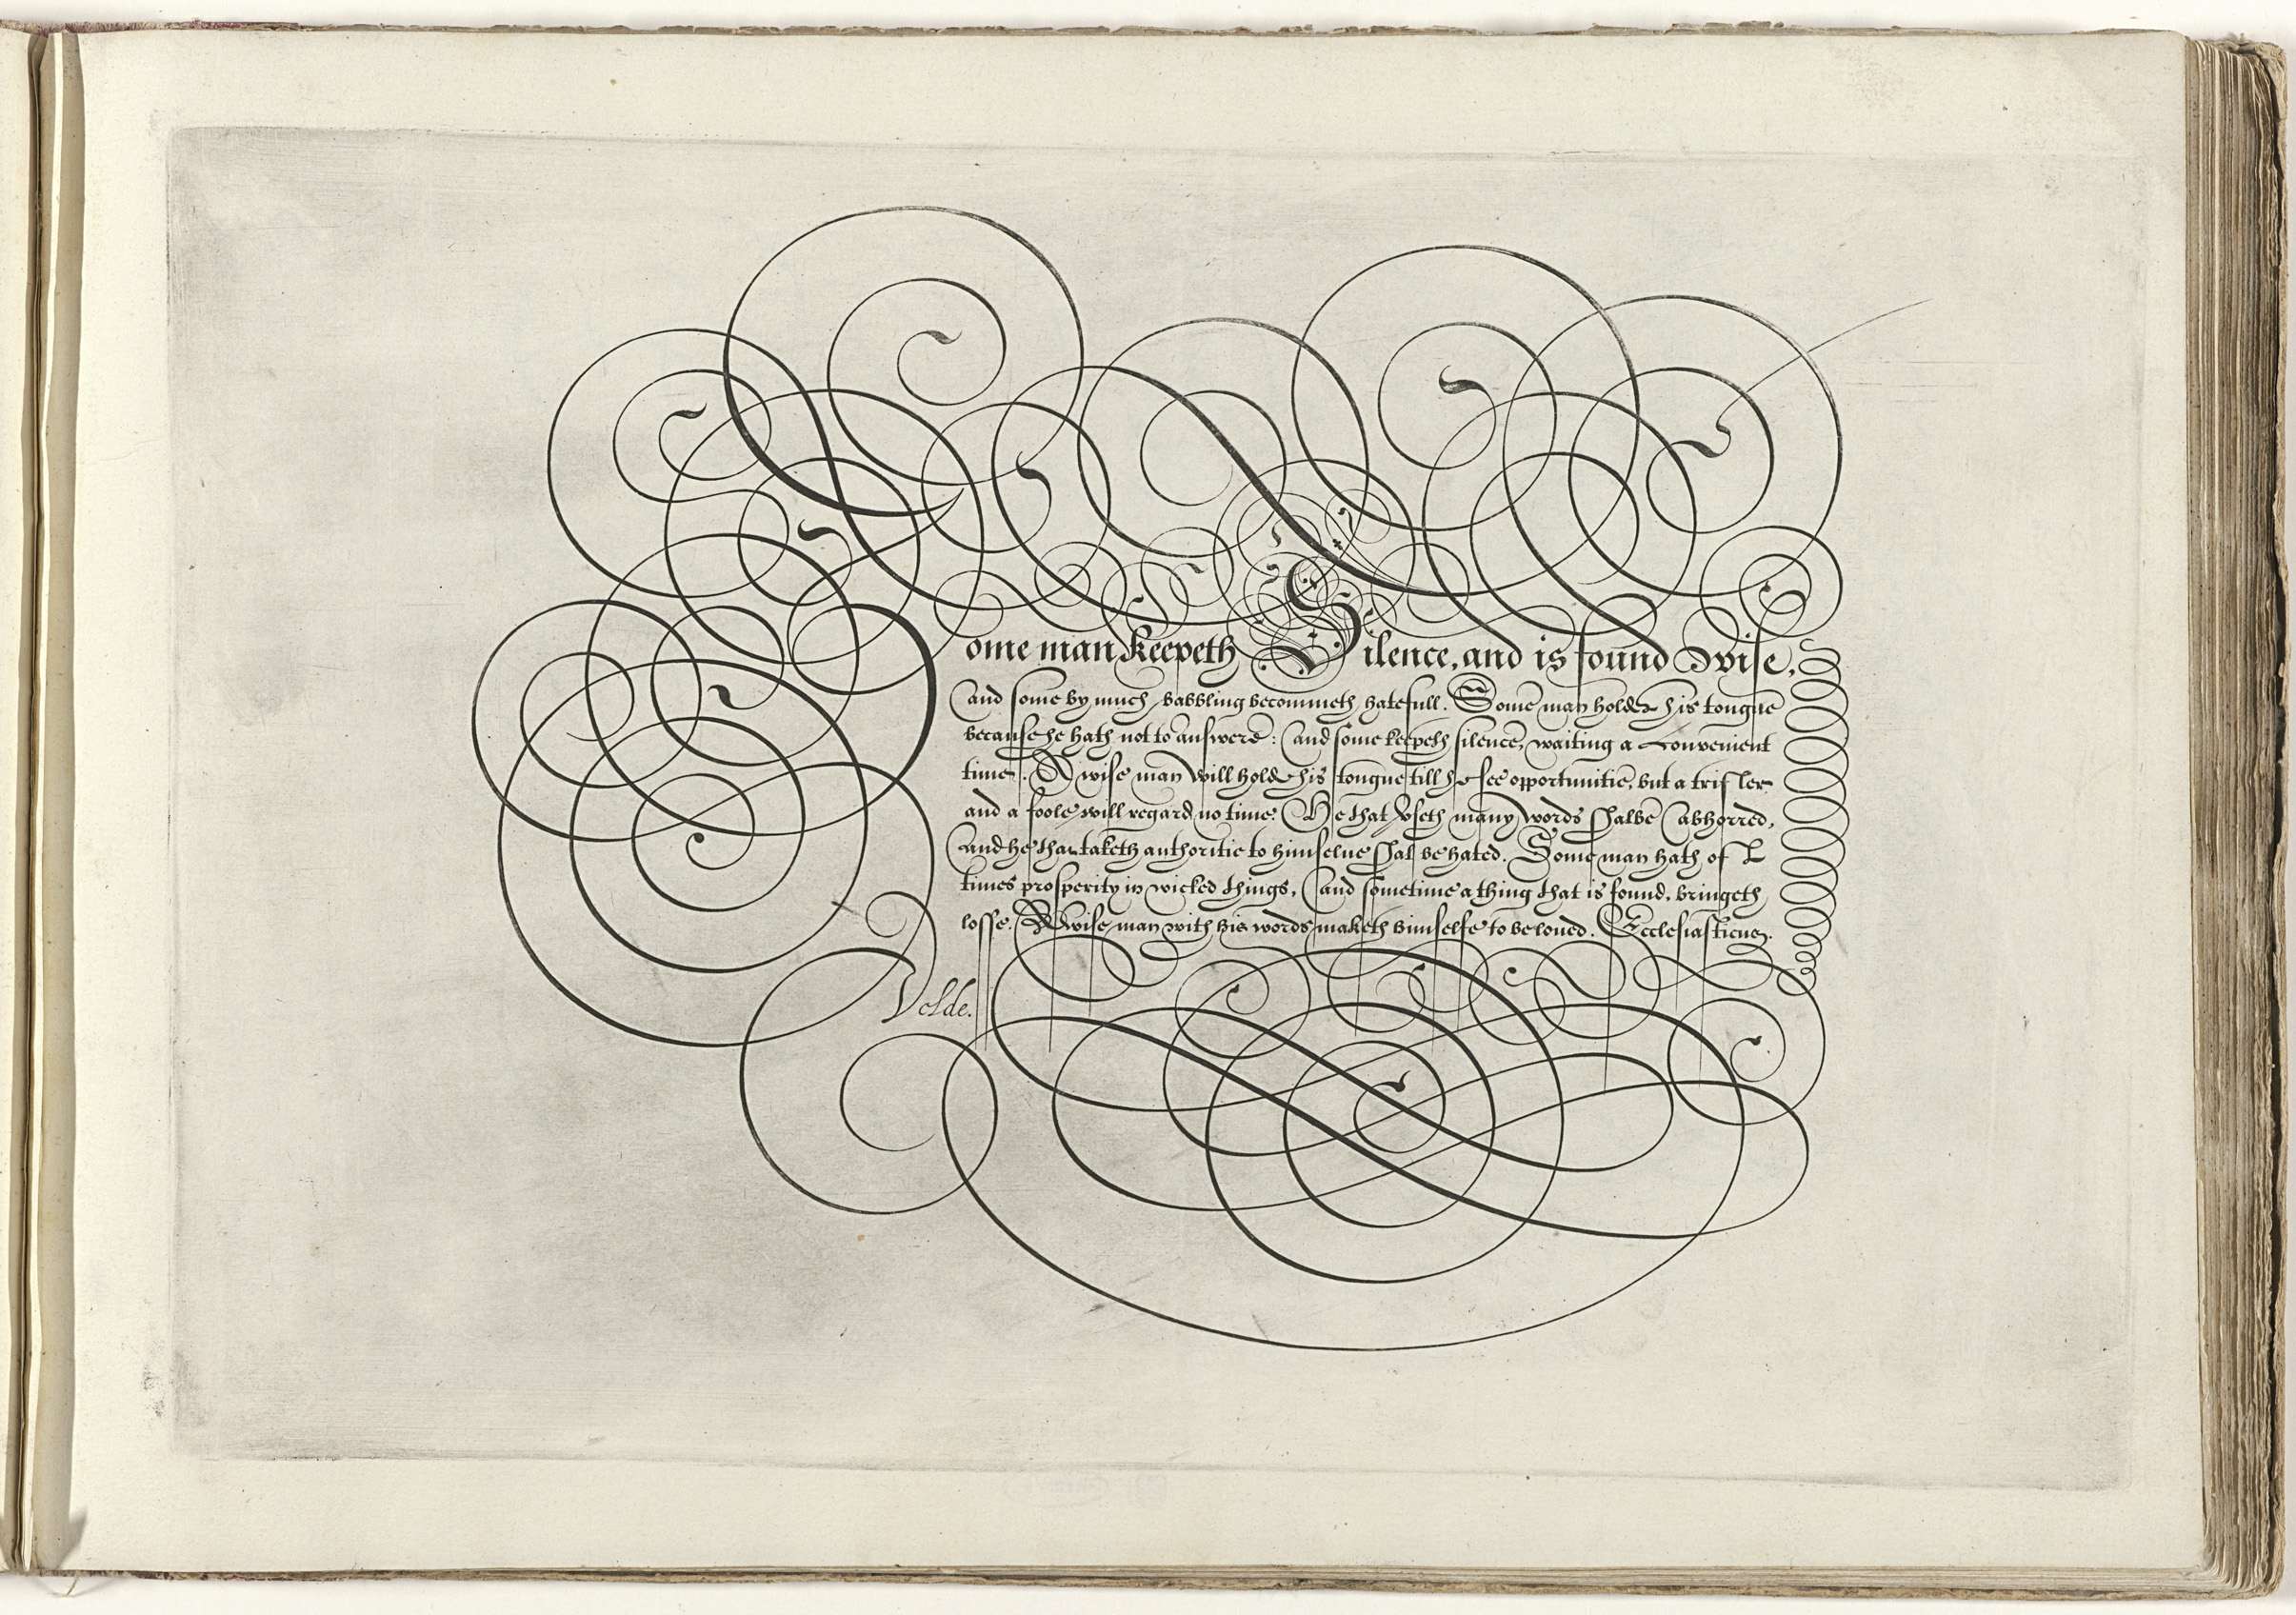 Some man keepeth Silence, and is found wise,
and some by much babbling becommeth hatefull. Some man holdeth his tongue
because he hath not to answere: and some keepeth silence, waiting a convenient
time. A wise man will holde his tongue till he see opportunitie, but a trifler
and a foole will regard no time. He that vseth many words shalbe abhorred,
and he that taketh authoritie to himselue shal be hated. Some man hath oft
times prosperity in wicked things, and sometime a thing that is found, bringeth
losse. A wise man with his words maketh himselfe to be loued. Ecclesiasticus.
Velde.